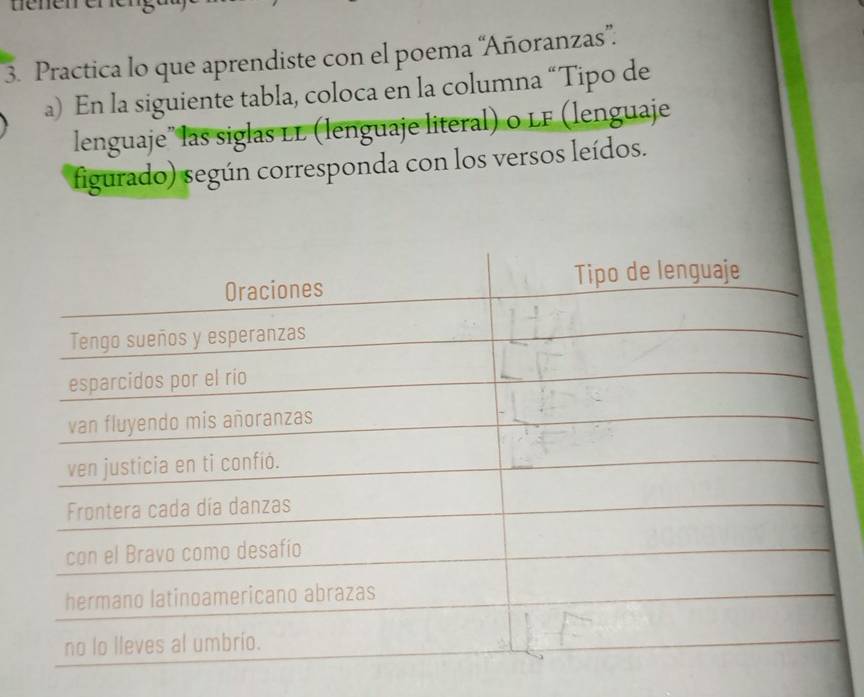 3. Practica lo que aprendiste con el poema “Añoranzas”.
a) En la siguiente tabla, coloca en la columna “Tipo de
lenguaje” las siglas LL (lenguaje literal) o LF (lenguaje
figurado) según corresponda con los versos leídos.
Oraciones Tipo de lenguaje
Tengo sueños y esperanzas
esparcidos por el río LF
van fluyendo mis añoranzas
ven justicia en ti confió. LF
Frontera cada día danzas
con el Bravo como desafío
hermano latinoamericano abrazas
no lo lleves al umbrío. LF